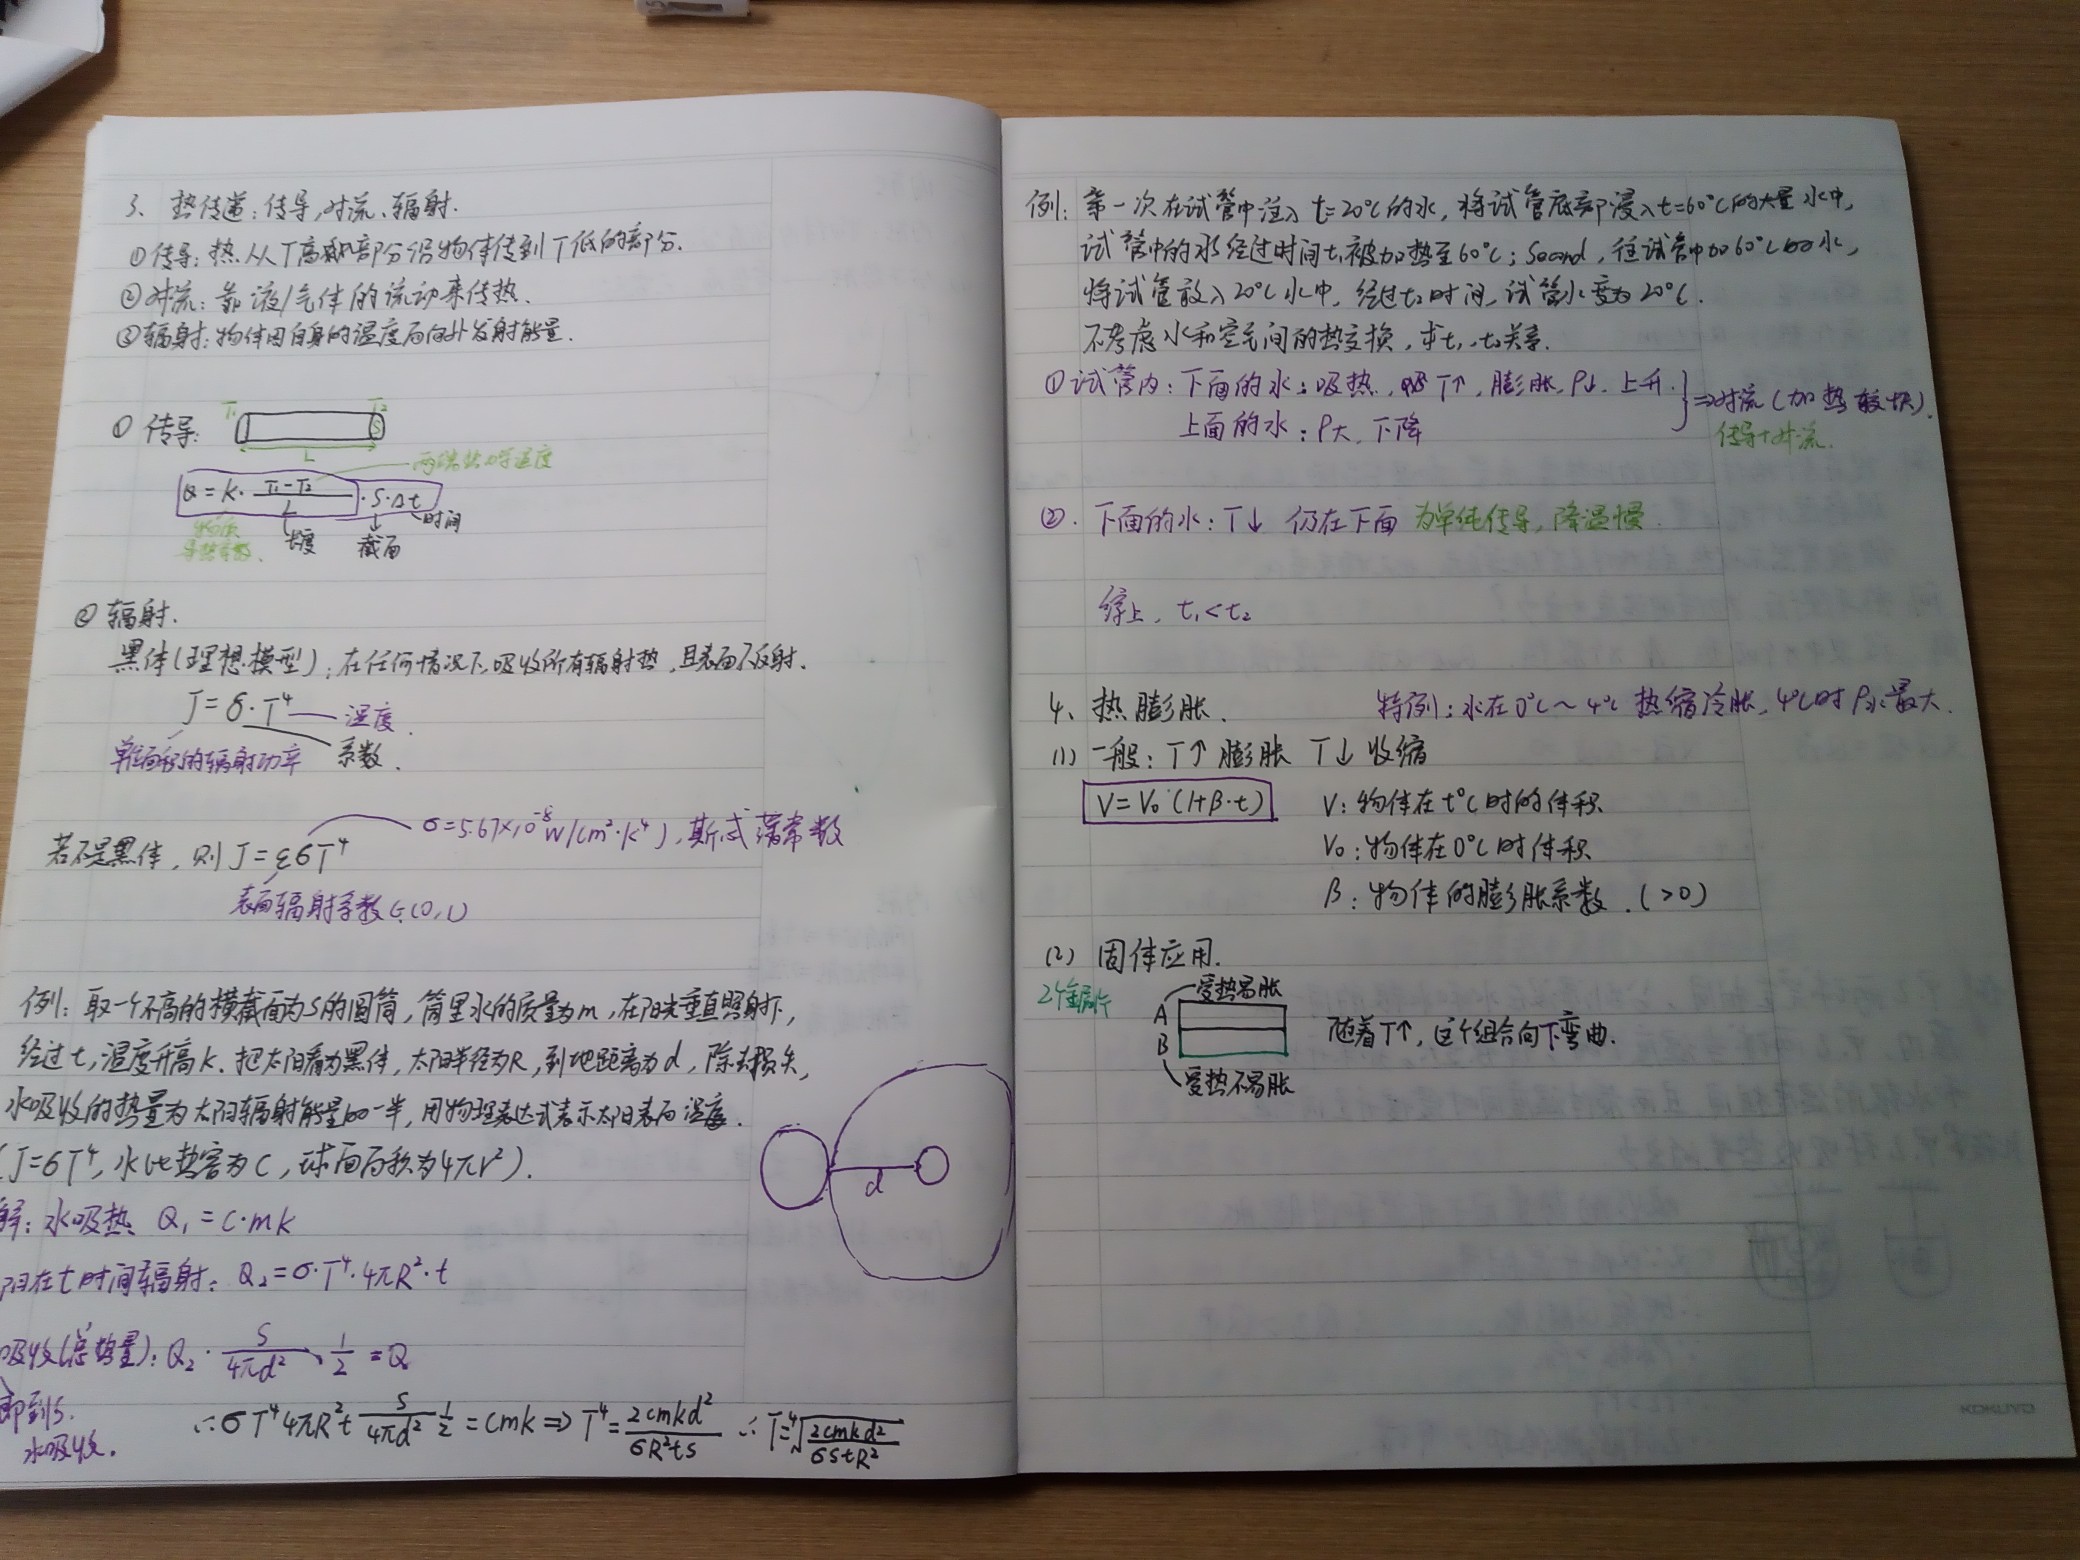 3、热传递：传导，对流、辐射.
①传导：热从T高的部分沿物体传到T低的部分.
②对流：靠液/气体的流动来传热.
③辐射：物体因自身的温度而向外发射能量.
① 传导：
T₁ T₂
S
L
两端热力学温度
Q = K · (T₁-T₂)/L · S·Δt
物质 导热系数.
长度
截面
时间
② 辐射.
黑体(理想模型)：在任何情况下,吸收所有辐射热,且表面不反射.
J = δ·T⁴ 温度.
单位面积的辐射功率 系数.
σ=5.67×10⁻⁸W/(m²·K⁴), 斯忒藩常数
若不是黑体, 则 J=εσT⁴
表面辐射系数∈(0,1)
例：取一个不高的横截面为S的圆筒, 筒里水的质量为m, 在阳光垂直照射下,
经过t,温度升高K. 把太阳看为黑体, 太阳半径为R, 到地距离为d, 除去损失,
水吸收的热量为太阳辐射能量的一半, 用物理表达式表示太阳表面温度.
(J=σT⁴, 水比热容为C, 球面面积为4πr²).
d
解：水吸热 Q₁ = C·mk
阳在t时间辐射：Q₂=σ·T⁴·4πR²·t
吸收(总热量)：Q₂ · S/4πd² · 1/2 = Q
即到S.
水吸收.
∴σT⁴4πR²t S/4πd² 1/2 = cmk ⇒ T⁴ = 2cmkd²/σR²ts ∴ T=⁴√(2cmkd²/σstR²)
例：第一次在试管中注入 t=20℃的水, 将试管底部浸入t=60℃的大量水中,
试管中的水经过时间t₁被加热至60℃; Second, 往试管中加60℃的水,
将试管放入20℃水中, 经过t₂时间, 试管水变为20℃.
不考虑水和空气间的热交换, 求t₁、t₂关系.
①试管内：下面的水：吸热, T↑, 膨胀, ρ↓. 上升.
上面的水：ρ大, 下降
⇒对流(加热较快).
传导+对流.
②. 下面的水：T↓ 仍在下面 为单纯传导, 降温慢.
综上, t₁<t₂
4、热膨胀. 特例：水在0℃～4℃ 热缩冷胀, 4℃时ρ水最大.
(1) 一般：T↑ 膨胀 T↓ 收缩
V=V₀·(1+β·t) V：物体在t℃时的体积
V₀：物体在0℃时体积
β：物体的膨胀系数. (>0)
(2) 固体应用.
2个金属片
受热易胀
A
B
受热不易胀
随着T↑, 这个组合向下弯曲.